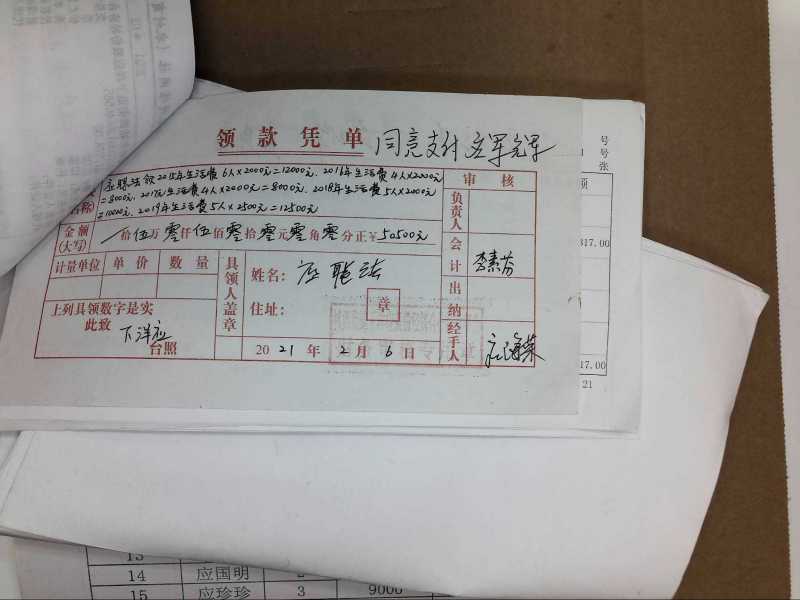 领款凭单 同意支付
应聪法领2015年生活费6人×2000元=12000元、2016年生活费4人×2000元
=8000元、2017年生活费4人×2000元=8000元、2018年生活费5人×2000元
=10000元、2019年生活费5人×2500元=12500元
名称)
金额
(大写)
拾伍万零仟伍佰零拾零元零角零分正¥50500元
计量单位 单价 数量
具领人盖章
姓名:应聪法
住址:
章
上列具领数字是实
此致
下洋应
台照
2021年2月6日
审核
负责人
会计 李素芬
出纳
经手人
号
号
张
额
317.00
17.00
21
13
14 应国明
15 应珍珍 3 9000